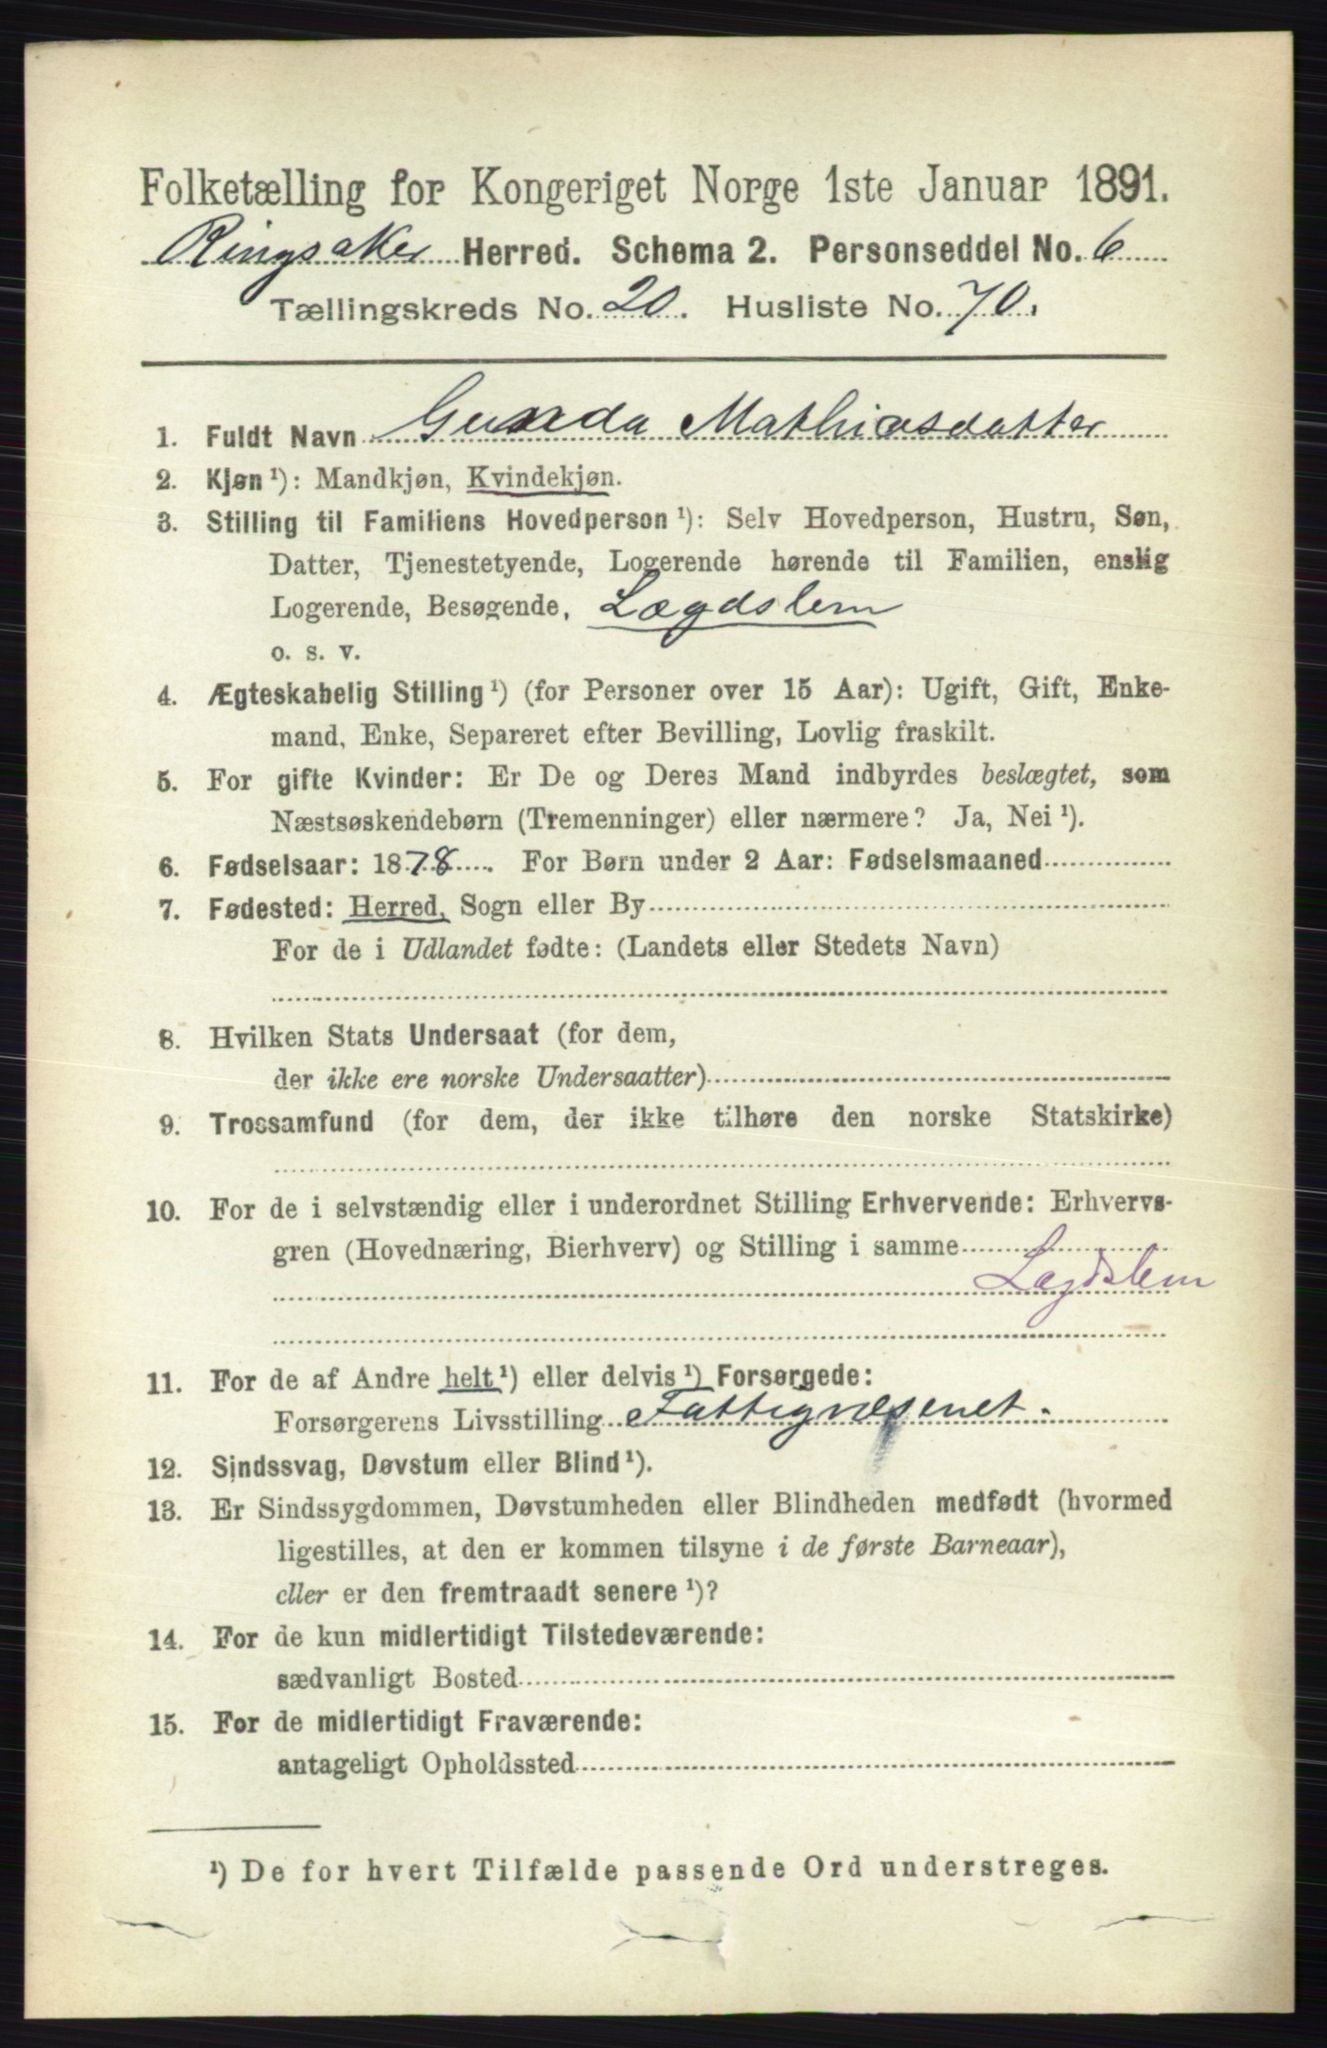 Folketælling for Kongeriget Norge 1ste Januar 1891.
Ringsaker Herred. Schema 2. Personseddel No. 6
Tællingskreds No. 20. Husliste No. 70.
1. Fuldt Navn Gunda Mathiasdatter
2. Kjøn ¹): Mandkjøn, Kvindekjøn.
3. Stilling til Familiens Hovedperson ¹): Selv Hovedperson, Hustru, Søn,
Datter, Tjenestetyende, Logerende hørende til Familien, enslig
Logerende, Besøgende, Lægdslem
o. s. v.
4. Ægteskabelig Stilling ¹) (for Personer over 15 Aar): Ugift, Gift, Enke-
mand, Enke, Separeret efter Bevilling, Lovlig fraskilt.
5. For gifte Kvinder: Er De og Deres Mand indbyrdes beslægtet, som
Næstsøskendebørn (Tremenninger) eller nærmere? Ja, Nei ¹).
6. Fødselsaar: 1878. For Børn under 2 Aar: Fødselsmaaned
7. Fødested: Herred, Sogn eller By
For de i Udlandet fødte: (Landets eller Stedets Navn)
8. Hvilken Stats Undersaat (for dem,
der ikke ere norske Undersaatter)
9. Trossamfund (for dem, der ikke tilhøre den norske Statskirke)
10. For de i selvstændig eller i underordnet Stilling Erhvervende: Erhvervs-
gren (Hovednæring, Bierhverv) og Stilling i samme
Lægdslem
11. For de af Andre helt ¹) eller delvis ¹) Forsørgede:
Forsørgerens Livsstilling Fattigvæsenet.
12. Sindssvag, Døvstum eller Blind ¹).
13. Er Sindssygdommen, Døvstumheden eller Blindheden medfødt (hvormed
ligestilles, at den er kommen tilsyne i de første Barneaar),
eller er den fremtraadt senere ¹)?
14. For de kun midlertidigt Tilstedeværende:
sædvanligt Bosted
15. For de midlertidigt Fraværende:
antageligt Opholdssted
¹) De for hvert Tilfælde passende Ord understreges.